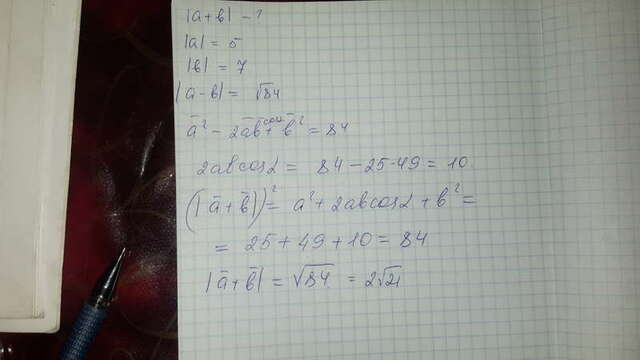 |a+b| - ?
|a| = 5
|b| = 7
|a-b| = √84
a̅² - 2a̅b̅ cosα + b̅² = 84
2abcosα = 84-25-49 = 10
(|a̅+b̅|)² = a²+2abcosα+b² =
= 25+49+10=84
|a̅+b̅| = √84 = 2√21